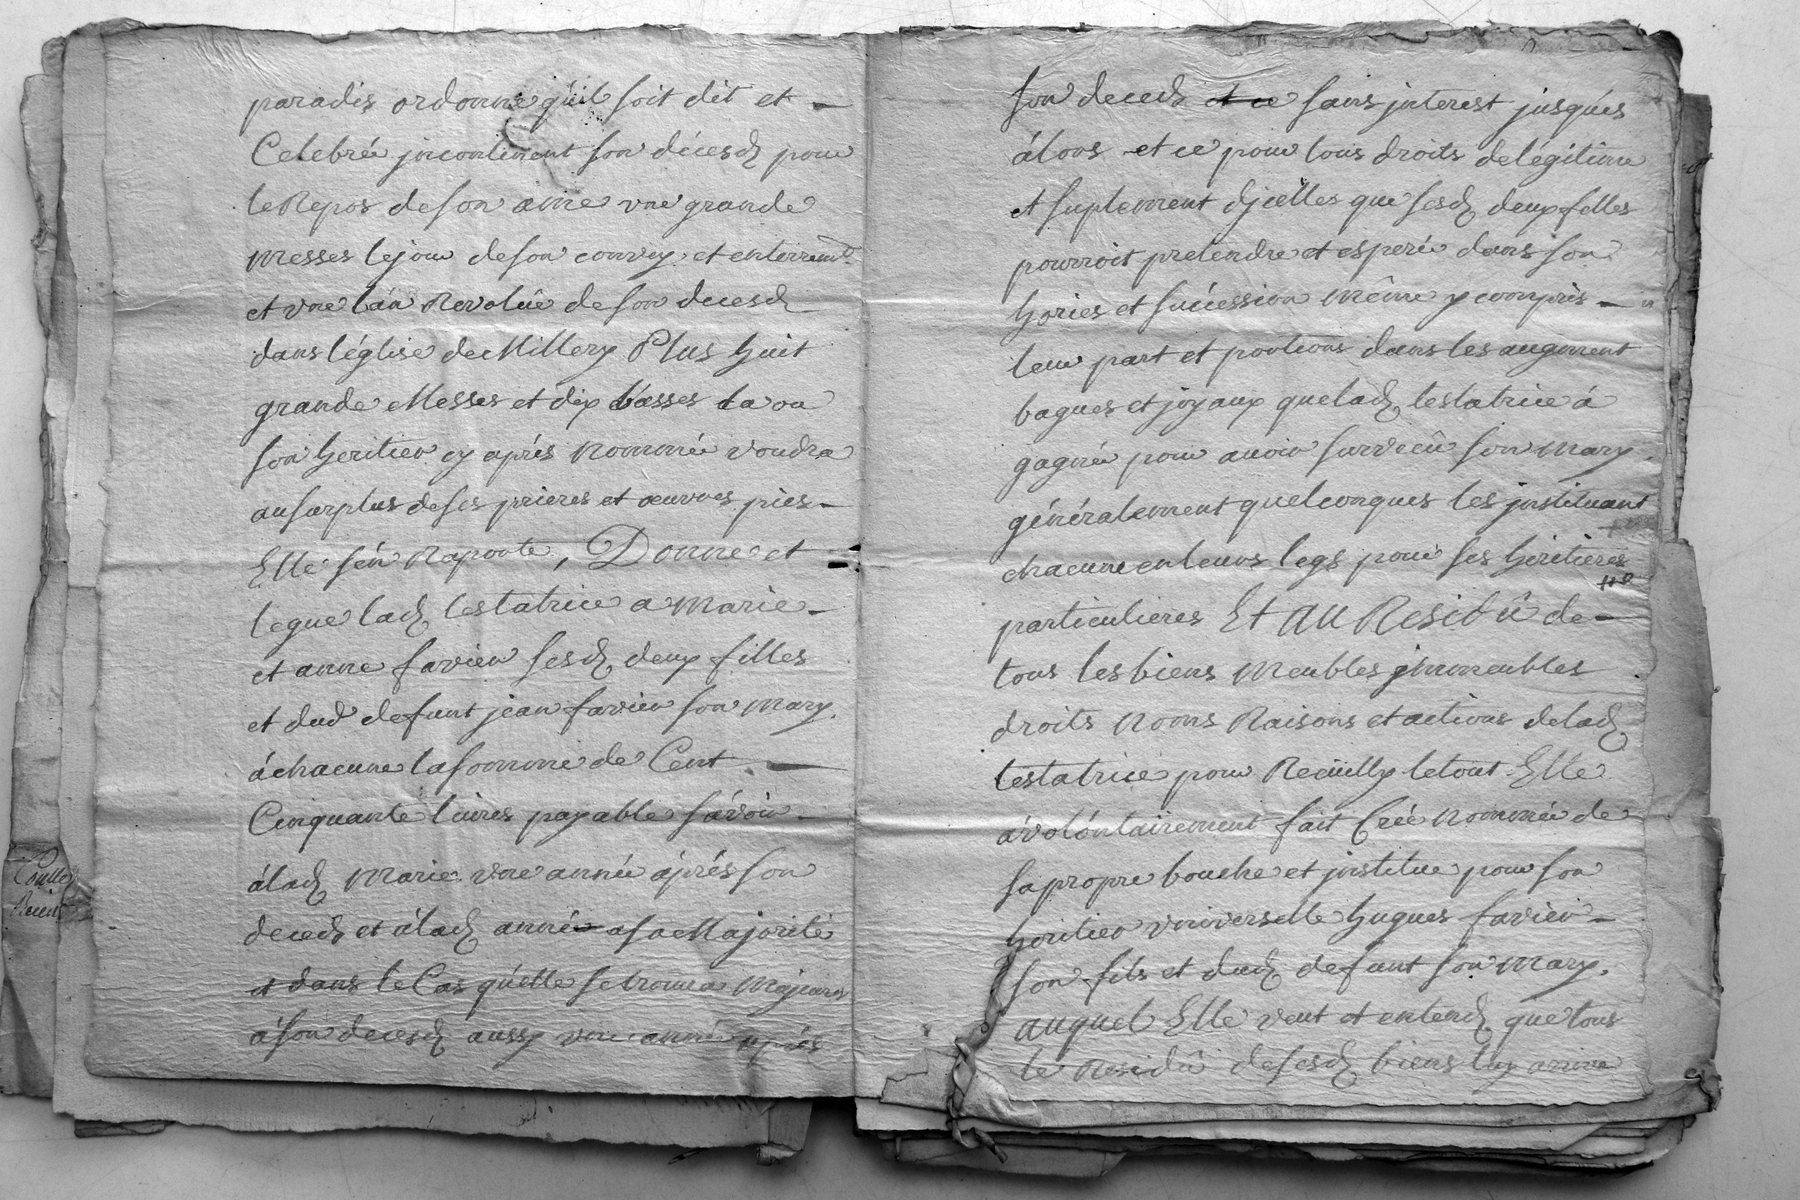 paradis ordonne quil soit dit et
Celebrée jncontinent son décesd pour
le Repos de son ame vne grande
Messes le jour de son convoy et enterremt
et vne l'an Revolüe de son decesd
dans l'église de Millery Plus huit
grande Messes et dix basses la ou
son heritier cy aprés nommée voudra
au surplus de ses prieres et œuvres pies
Elle s'én Raporte, Donne et
legue lad testatrice a Marie
et anne favier sesd deux filles
et dud defunt jean favier son Mary
á chacune la somme de Cent
Cinquante livres payable sávoir
á lad Marie vne année áprés son
decesd et á lad anne a sa Majorité
et dans le Cas qu'elle se trouva Majeure
á son decesd aussy vne année aprés
Coulle
son decesd et ce sans jnterest jusqués
álors et ce pour tous droits de légitime
et suplement djcelles que sesd deux filles
pourroit pretendre et esperée dans son
hories et sucession même y compris
leur part et portions dans les augment
bagues et joyaux que lad testatrice á
gagnée pour avoir survecû son Mary
généralement quelconques les jnstituant
chacune en leurs legs pour ses héritieres
particulieres Et au Residû de
tous les biens Meubles jmmeubles
droits Noms Raisons et actions de lad
testatrice pour Recüilly le tout Elle
á volóntairement fait Créé Nommée de
sa propre bouche et jnstitue pour son
héritier vniverselle hugues favier
son fils et dud defunt son Mary
auquel Elle veut et entend que tous
le Residû de sesd biens luy arrive